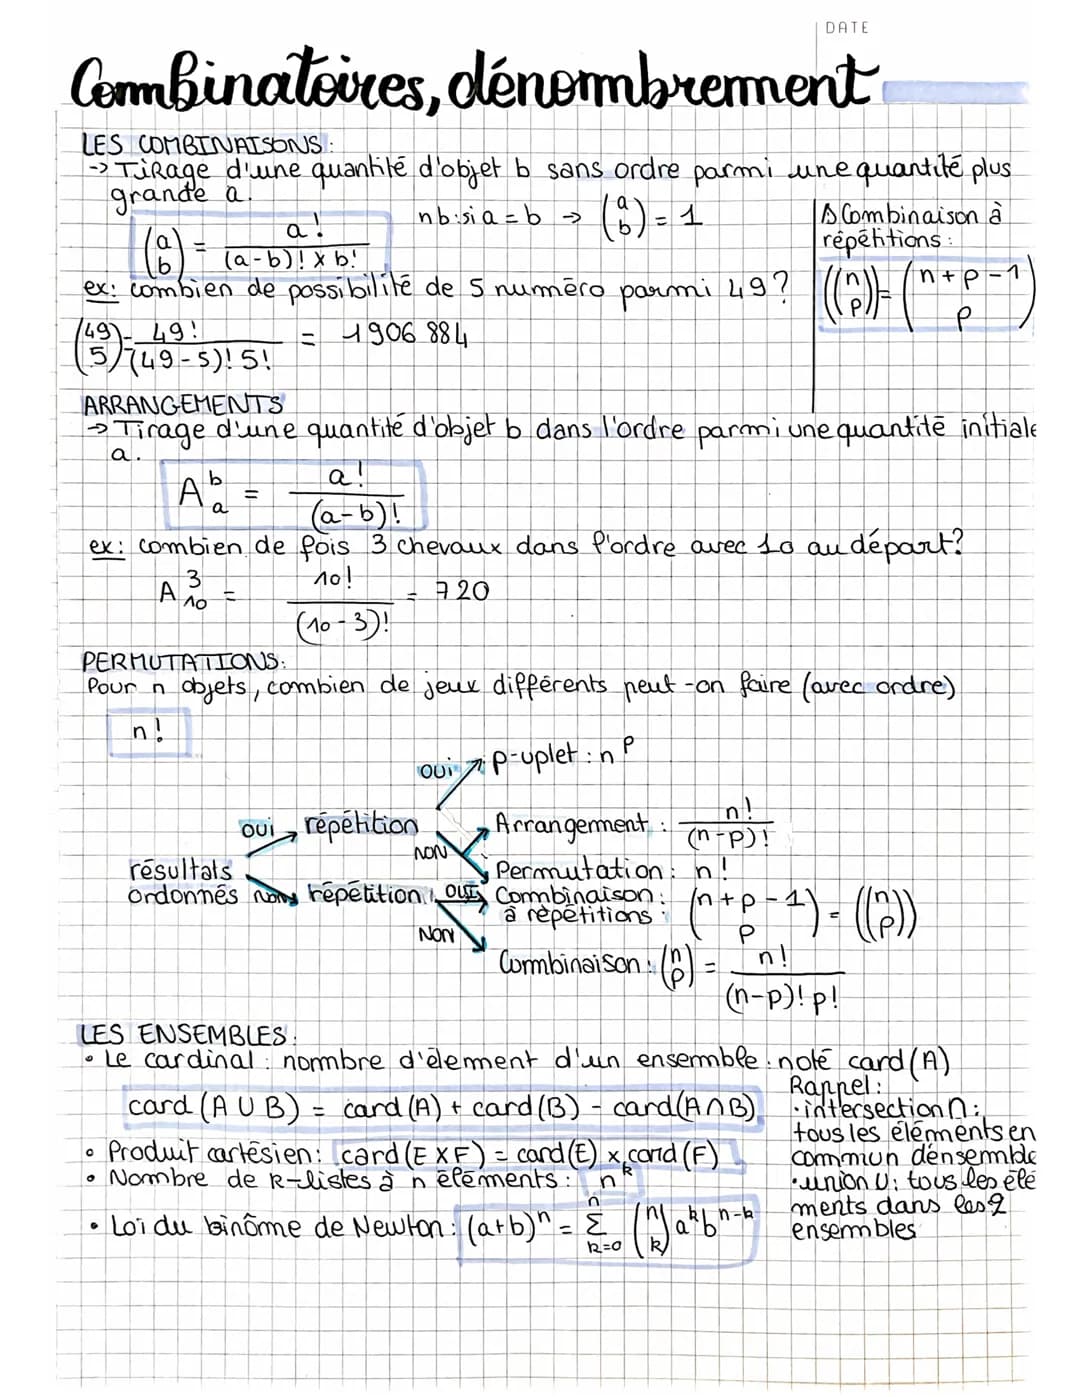 DATE
Combinatoires, dénombrement
LES COMBINAISONS :
-> Tirage d'une quantité d'objet b sans ordre parmi une quantité plus
grande a.
nb: si a = b → (a b) = 1
(a b) = a! / (a-b)! x b!
⚠ Combinaison à
répétitions :
((n p)) = (n+p-1 p)
ex: combien de possibilité de 5 numéro parmi 49 ?
(49 5) = 49! / (49-5)! 5! = 1906 884
ARRANGEMENTS
→ Tirage d'une quantité d'objet b dans l'ordre parmi une quantité initiale
a.
A_a^b = a! / (a-b)!
ex: combien de fois 3 chevaux dans l'ordre avec 10 au départ?
A_10^3 = 10! / (10-3)! = 720
PERMUTATIONS:
Pour n objets, combien de jeux différents peut-on faire (avec ordre)
n!
oui ↗ p-uplet : n^p
oui → répétition
Arrangement : n! / (n-p)!
NON
résultats
ordonnés
Permutation : n!
non répétition oui Combinaison
à répétitions : (n+p-1 p) = ((n p))
NON
Combinaison : (n p) = n! / (n-p)! p!
LES ENSEMBLES:
• Le cardinal : nombre d'élement d'un ensemble : noté card(A)
card(A U B) = card(A) + card(B) - card(A∩B)
• Produit cartésien: card(E x F) = card(E) x card(F)
• Nombre de k-listes à n éléments : n^k
• Loi du binôme de Newton : (a+b)^n = Σ_{k=0}^{n} (n k) a^k b^{n-k}
Rappel :
• intersection ∩ :
tous les éléments en
commun d'ensemble
• union U : tous les élé
ments dans les 2
ensembles